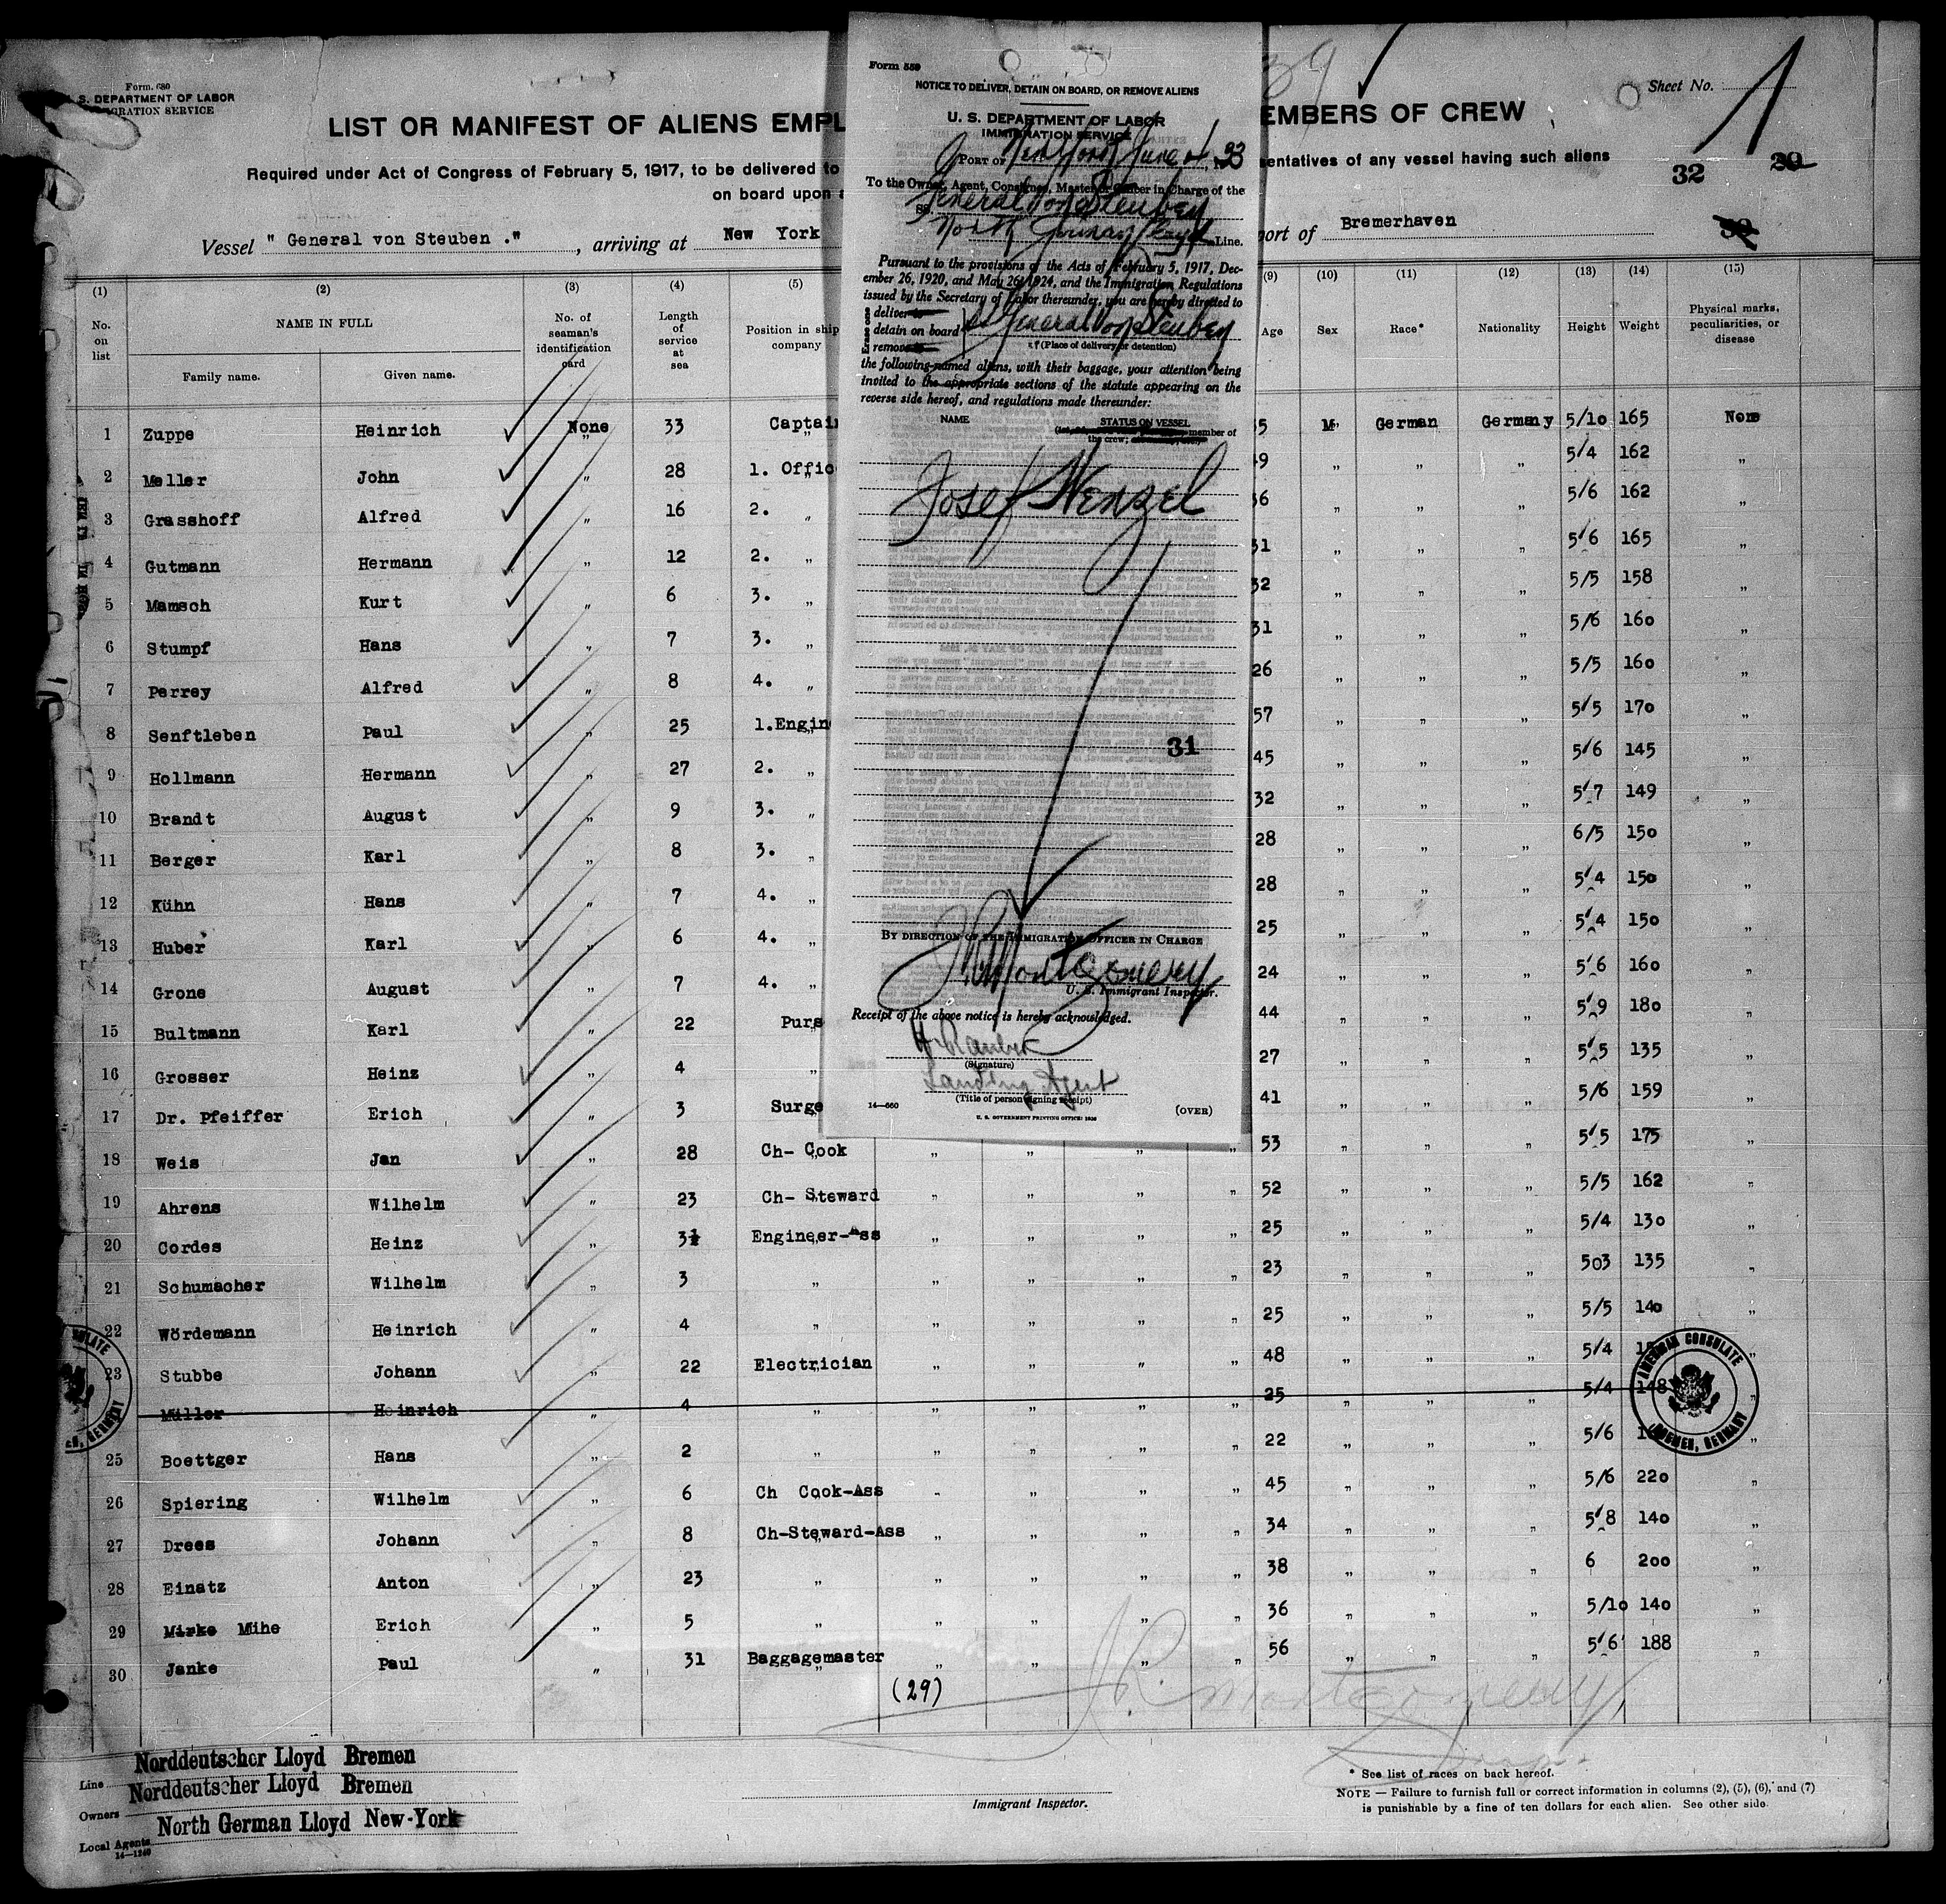 Form. 680
S. DEPARTMENT OF LABOR
GRATION SERVICE
LIST OR MANIFEST OF ALIENS EMPL
EMBERS OF CREW
Sheet No. 1
Required under Act of Congress of February 5, 1917, to be delivered to
sentatives of any vessel having such aliens
32 20
on board upon a
Vessel " General von Steuben ." , arriving at New York
port of Bremerhaven
Form 559
NOTICE TO DELIVER, DETAIN ON BOARD, OR REMOVE ALIENS
U. S. DEPARTMENT OF LABOR
IMMIGRATION SERVICE
PORT OF New York June 4, 33
To the Owner, Agent, Consignee, Master or Officer in Charge of the
SS. General Von Steuben
North German Lloyd Line.
Pursuant to the provisions of the Acts of February 5, 1917, Dec-
ember 26, 1920, and May 26, 1924, and the Immigration Regulations
issued by the Secretary of Labor thereunder, you are hereby directed to
Erase one
deliver to
detain on board SS General Von Steuben
remove to
(Place of delivery or detention)
the following-named aliens, with their baggage, your attention being
invited to the appropriate sections of the statute appearing on the
reverse side hereof, and regulations made thereunder:
NAME STATUS ON VESSEL
member of
the crew;
Josef Wenzel
31
BY DIRECTION OF THE IMMIGRATION OFFICER IN CHARGE
Montgomery
U. S. Immigrant Inspector.
Receipt of the above notice is hereby acknowledged.
(Signature)
Landing Agent
(Title of person signing receipt)
14—660 (OVER)
U. S. GOVERNMENT PRINTING OFFICE
(1) (2) (3) (4) (5) (9) (10) (11) (12) (13) (14) (15)
No. on list NAME IN FULL No. of seaman's identification card Length of service at sea Position in ship company Age Sex Race* Nationality Height Weight Physical marks, peculiarities, or disease
Family name. Given name.
1 Zuppe Heinrich None 33 Captai 5 M German Germany 5/10 165 None
2 Meller John " 28 1. Offic 49 " " " 5/4 162 "
3 Grasshoff Alfred " 16 2. " 36 " " " 5/6 162 "
4 Gutmann Hermann " 12 2. " 31 " " " 5/6 165 "
5 Mamsch Kurt " 6 3. " 32 " " " 5/5 158 "
6 Stumpf Hans " 7 3. " 31 " " " 5/6 160 "
7 Perrey Alfred " 8 4. " 26 " " " 5/5 160 "
8 Senftleben Paul " 25 1.Engin 57 " " " 5/5 170 "
9 Hollmann Hermann " 27 2. " 45 " " " 5/6 145 "
10 Brandt August " 9 3. " 32 " " " 5/7 149 "
11 Berger Karl " 8 3. " 28 " " " 6/5 150 "
12 Kühn Hans " 7 4. " 28 " " " 5/4 150 "
13 Huber Karl " 6 4. " 25 " " " 5/4 150 "
14 Grone August " 7 4. " 24 " " " 5/6 160 "
15 Bultmann Karl " 22 Purs 44 " " " 5/9 180 "
16 Grosser Heinz " 4 " 27 " " " 5/5 135 "
17 Dr. Pfeiffer Erich " 3 Surge 41 " " " 5/6 159 "
18 Weis Jan " 28 Ch- Cook " " " " 53 " " " 5/5 175 "
19 Ahrens Wilhelm " 23 Ch- Steward " " " " 52 " " " 5/5 162 "
20 Cordes Heinz " 3½ Engineer-Ass " " " " 25 " " " 5/4 130 "
21 Schumacher Wilhelm " 3 " " " " " 23 " " " 503 135 "
22 Wördemann Heinrich " 4 " " " " " 25 " " " 5/5 140 "
23 Stubbe Johann " 22 Electrician " " " " 48 " " " 5/4 "
Müller Heinrich " 4 " " " " " 25 " " " 5/4 148 "
25 Boettger Hans " 2 " " " " " 22 " " " 5/6 "
26 Spiering Wilhelm " 6 Ch Cook-Ass " " " " 45 " " " 5/6 220 "
27 Drees Johann " 8 Ch-Steward-Ass " " " " 34 " " " 5/8 140 "
28 Einatz Anton " 23 " " " " " 38 " " " 6 200 "
29 Mirke Mihe Erich " 5 " " " " " 36 " " " 5/10 140 "
30 Janke Paul " 31 Baggagemaster " " " " 56 " " " 5/6 188 "
(29)
Montgomery
AMERICAN CONSULATE
BREMEN, GERMANY
Line Norddeutscher Lloyd Bremen
Owners Norddeutscher Lloyd Bremen
Local Agents North German Lloyd New-York
14—1240
Immigrant Inspector.
* See list of races on back hereof.
NOTE — Failure to furnish full or correct information in columns (2), (5), (6), and (7)
is punishable by a fine of ten dollars for each alien. See other side.